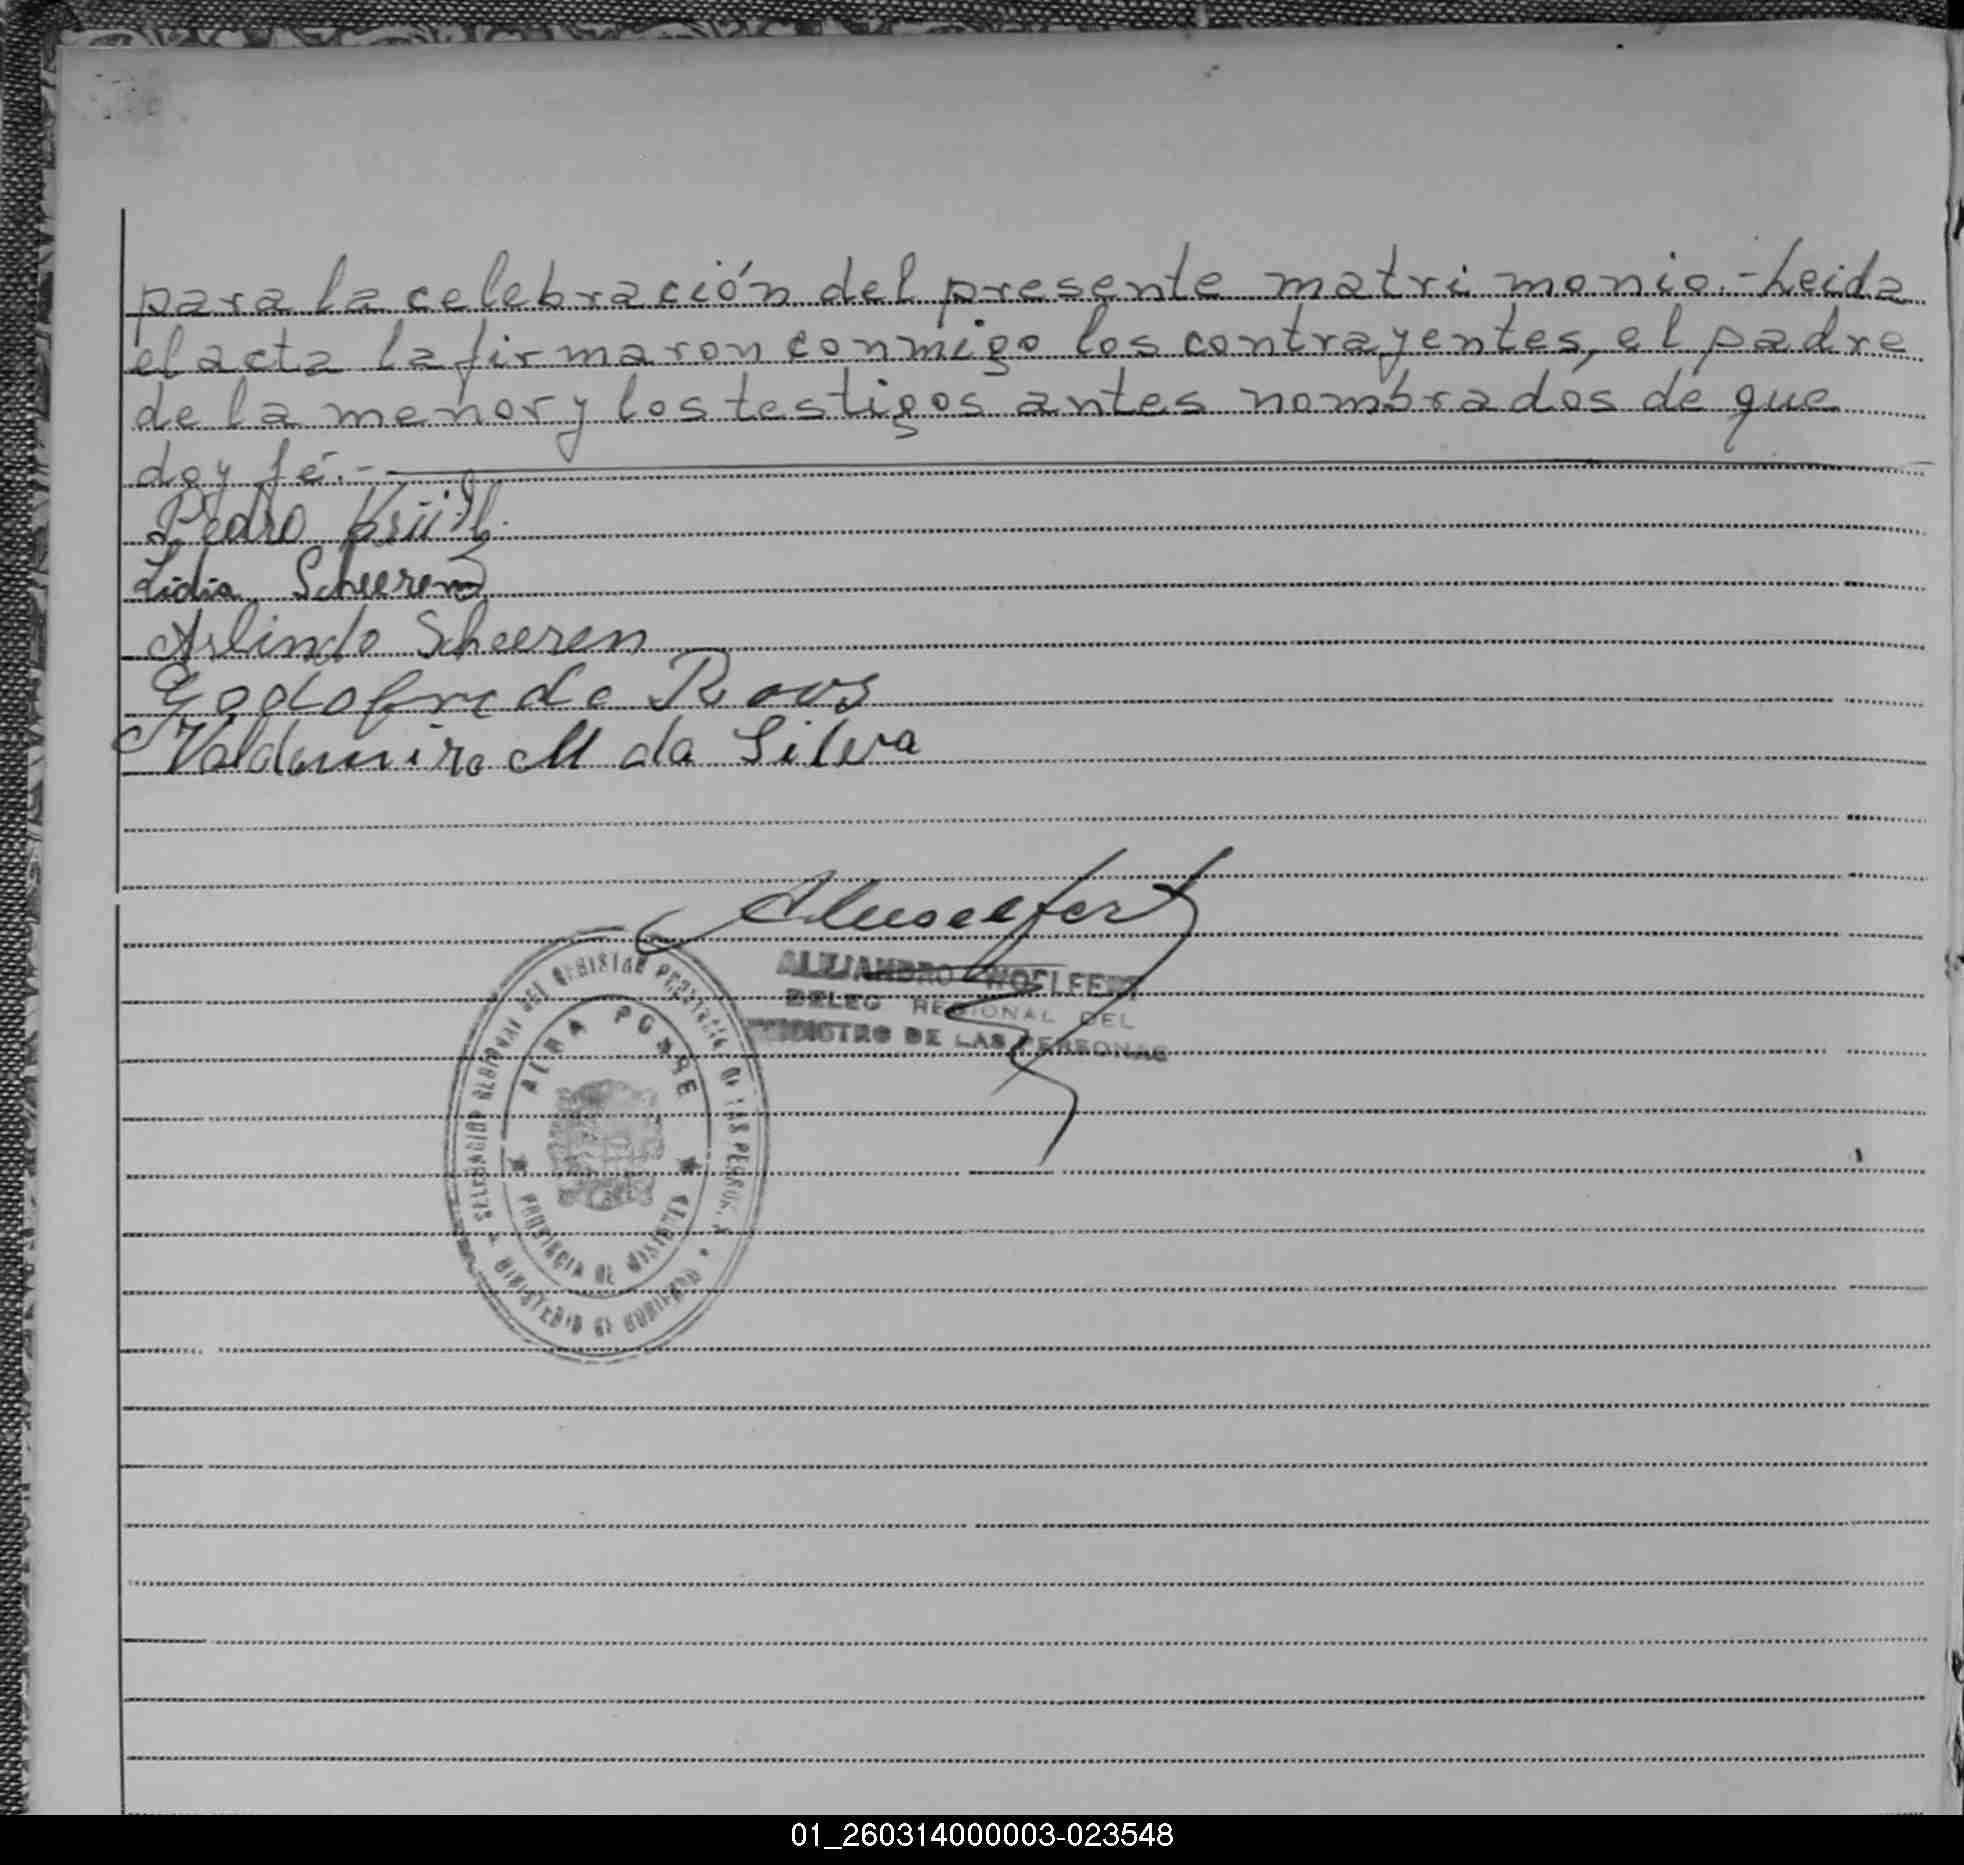 para la celebración del presente matrimonio.- Leida
el acta la firmaron conmigo los contrayentes, el padre
de la menor y los testigos antes nombrados de que
doy fé.-
Pedro
Lidia Scheeren
Arlindo Scheeren
Godofredo Roos
Valdemiro M da Silva
ALEJANDRO WOELFERT
DELEG REGIONAL DEL
REGISTRO DE LAS PERSONAS
DELEGACION REGIONAL DEL REGISTRO PROVINCIAL DE LAS PERSONAS
MINISTERIO DE GOBIERNO
ALBA POSSE
PROVINCIA DE MISIONES
01_260314000003-023548